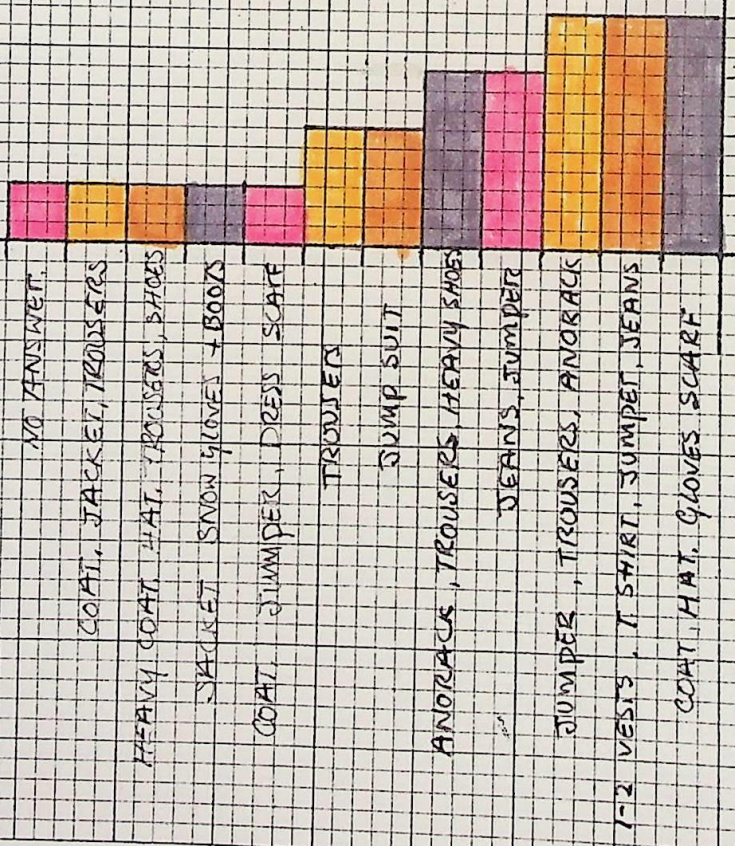 NO ANSWER.
COAT, JACKET, TROUSERS
HEAVY COAT, HAT, TROUSERS, SHOES
JACKET SNOW GLOVES + BOOTS
COAT, JUMPER, DRESS SCARF
TROUSERS
JUMP SUIT
ANORACK, TROUSERS HEAVY SHOES
JEANS, JUMPER
JUMPER, TROUSERS, ANORACK
1-2 VESTS, T SHIRT, JUMPER, JEANS
COAT, HAT, GLOVES SCARF